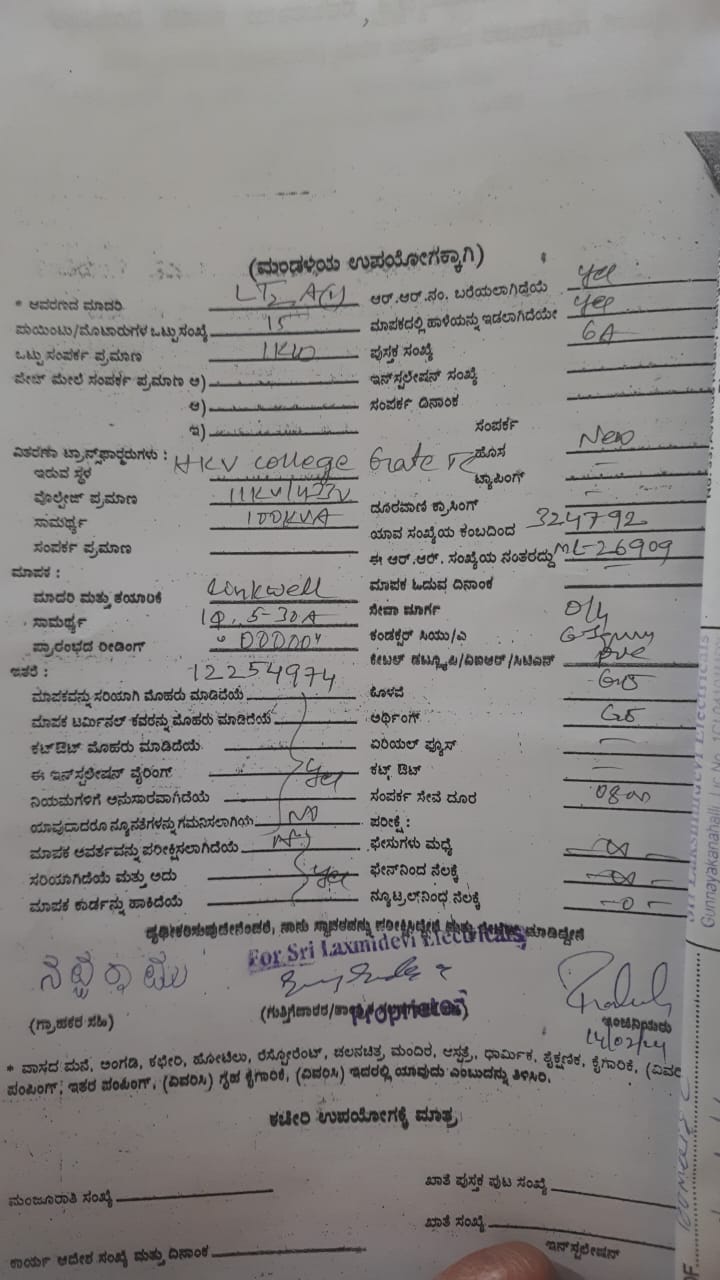 (ಮಂಡಳಿಯ ಉಪಯೋಗಕ್ಕಾಗಿ)
* ಆವರಣದ ಮಾದರಿ LT2 A(1) ಆರ್.ಆರ್.ನಂ. ಬರೆಯಲಾಗಿದೆಯೆ yes
ಪಾಯಿಂಟು/ಮೊಟಾರುಗಳ ಒಟ್ಟು ಸಂಖ್ಯೆ 15 ಮಾಪಕದಲ್ಲಿ ಹಾಳೆಯನ್ನು ಇಡಲಾಗಿದೆಯೇ yes
ಒಟ್ಟು ಸಂಪರ್ಕ ಪ್ರಮಾಣ 1KW ಪುಸ್ತಕ ಸಂಖ್ಯೆ 6A
ಪೇಚ್ ಮೇಲೆ ಸಂಪರ್ಕ ಪ್ರಮಾಣ ಅ) ಇನ್‌ಸ್ಟಲೇಷನ್ ಸಂಖ್ಯೆ
ಆ) ಸಂಪರ್ಕ ದಿನಾಂಕ
ಇ) ಸಂಪರ್ಕ
ವಿತರಣಾ ಟ್ರಾನ್ಸ್‌ಫಾರ್ಮರುಗಳು : HKV college Gate TC ಹೊಸ New
ಇರುವ ಸ್ಥಳ ಟ್ಯಾಪಿಂಗ್ –
ವೊಲ್ಟೇಜ್ ಪ್ರಮಾಣ 11KV/433V ದೂರವಾಣಿ ಕ್ರಾಸಿಂಗ್ –
ಸಾಮರ್ಥ್ಯ 100KVA ಯಾವ ಸಂಖ್ಯೆಯ ಕಂಬದಿಂದ 324792
ಸಂಪರ್ಕ ಪ್ರಮಾಣ ಈ ಆರ್.ಆರ್. ಸಂಖ್ಯೆಯ ನಂತರದ್ದು ML-26909
ಮಾಪಕ : ಮಾಪಕ ಓದುವ ದಿನಾಂಕ
ಮಾದರಿ ಮತ್ತು ತಯಾರಿಕೆ Linkwell ಸೇವಾ ಮಾರ್ಗ O/H
ಸಾಮರ್ಥ್ಯ 1Φ, 5-30A ಕಂಡಕ್ಟರ್ ಸಿಯು/ಎ
ಪ್ರಾರಂಭದ ರೀಡಿಂಗ್ "00000" ಕೇಬಲ್ ಡಬ್ಲ್ಯೂಪಿ/ವಿಐಆರ್/ಸಿಟಿಎಸ್ pvc
ಇತರೆ : 12254974 ಕೊಳವೆ GB
ಮಾಪಕವನ್ನು ಸರಿಯಾಗಿ ಮೊಹರು ಮಾಡಿದೆಯೆ ಅರ್ಥಿಂಗ್ GB
ಮಾಪಕ ಟರ್ಮಿನಲ್ ಕವರನ್ನು ಮೊಹರು ಮಾಡಿದೆಯೆ ಏರಿಯಲ್ ಫ್ಯೂಸ್ –
ಕಟ್‌ಔಟ್ ಮೊಹರು ಮಾಡಿದೆಯೆ ಕಟ್ಟ್ ಔಟ್ –
ಈ ಇನ್‌ಸ್ಟಲೇಷನ್ ವೈರಿಂಗ್ Yes ಸಂಪರ್ಕ ಸೇವೆ ದೂರ 08m
ನಿಯಮಗಳಿಗೆ ಅನುಸಾರವಾಗಿದೆಯೆ ಪರೀಕ್ಷೆ :
ಯಾವುದಾದರೂ ನ್ಯೂನತೆಗಳನ್ನು ಗಮನಿಸಲಾಗಿಯೆ NO ಫೇಸುಗಳು ಮಧ್ಯೆ –∞–
ಮಾಪಕ ಅವರ್ತವನ್ನು ಪರೀಕ್ಷಿಸಲಾಗಿದೆಯೆ ಫೇಸ್‌ನಿಂದ ನೆಲಕ್ಕೆ –∞–
ಸರಿಯಾಗಿದೆಯೆ ಮತ್ತು ಅದು Yes ನ್ಯೂಟ್ರಲ್‌ನಿಂದ ನೆಲಕ್ಕೆ –0–
ಮಾಪಕ ಕಾರ್ಡನ್ನು ಹಾಕಿದೆಯೆ
ದೃಢೀಕರಿಸುವುದೇನೆಂದರೆ, ನಾನು ಸ್ಥಾವರವನ್ನು ಪರೀಕ್ಷಿಸಿದ್ದೇನೆ ಮತ್ತು ಮಾಡಿದ್ದೇನೆ
For Sri Laxmidevi Electricals
Proprietor
(ಗ್ರಾಹಕರ ಸಹಿ) (ಗುತ್ತಿಗೆದಾರರ/ ಇಂಜಿನಿಯರು
14/02/24
* ವಾಸದ ಮನೆ, ಅಂಗಡಿ, ಕಛೇರಿ, ಹೋಟೆಲು, ರೆಸ್ಟೋರೆಂಟ್, ಚಲನಚಿತ್ರ ಮಂದಿರ, ಆಸ್ಪತ್ರೆ, ಧಾರ್ಮಿಕ, ಶೈಕ್ಷಣಿಕ, ಕೈಗಾರಿಕೆ, (ವಿವರಿ
ಪಂಪಿಂಗ್, ಇತರ ಪಂಪಿಂಗ್, (ವಿವರಿಸಿ) ಗೃಹ ಕೈಗಾರಿಕೆ, (ವಿವರಿಸಿ) ಇದರಲ್ಲಿ ಯಾವುದು ಎಂಬುದನ್ನು ತಿಳಿಸಿರಿ.
ಕಚೇರಿ ಉಪಯೋಗಕ್ಕೆ ಮಾತ್ರ
ಮಂಜೂರಾತಿ ಸಂಖ್ಯೆ ಖಾತೆ ಪುಸ್ತಕ ಪುಟ ಸಂಖ್ಯೆ
ಖಾತೆ ಸಂಖ್ಯೆ
ಕಾರ್ಯ ಆದೇಶ ಸಂಖ್ಯೆ ಮತ್ತು ದಿನಾಂಕ ಇನ್‌ಸ್ಟಲೇಷನ್
Sri Lakshmidevi Electricals
Gunnayakanahalli